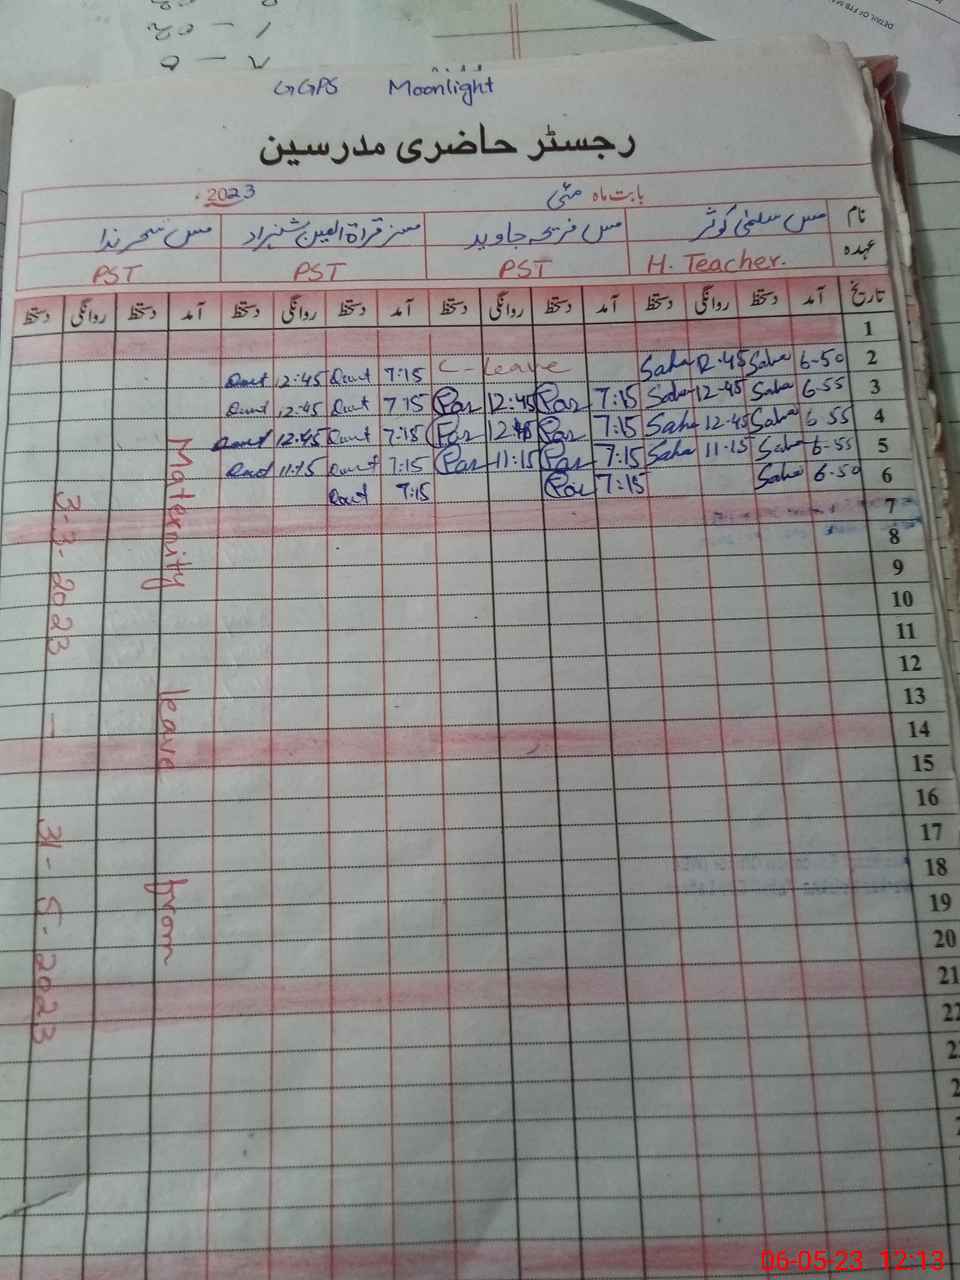 GGPS Moonlight
رجسٹر حاضری مدرسین
بابت ماہ مئی 2023
نام مس سلمیٰ کوثر مس فریحہ جاوید مسز قراۃ العین شہزاد مس سحر ندا
عہدہ H. Teacher. PST PST PST
تاریخ آمد دستخط روانگی دستخط آمد دستخط روانگی دستخط آمد دستخط روانگی دستخط آمد دستخط روانگی دستخط
1
2 6-50 Saha 12-45 Saha C-Leave 7:15 12:45
3 6-55 Saha 12-45 Saha 7:15 12:45 7:15 12:45
4 6-55 Saha 12-45 Saha 7:15 12:45 7:15 12:45
5 6-55 Saha 11-15 Saha 7:15 11:15 7:15 11:15
6 6-50 Saha 7:15 7:15
7
8
9
10
11
12
13
14
15
16
17
18
19
20
21
22
Maternity leave from
3-3-2023 – 31-5-2023
DETAIL OF FTB
06-05-23 12:13